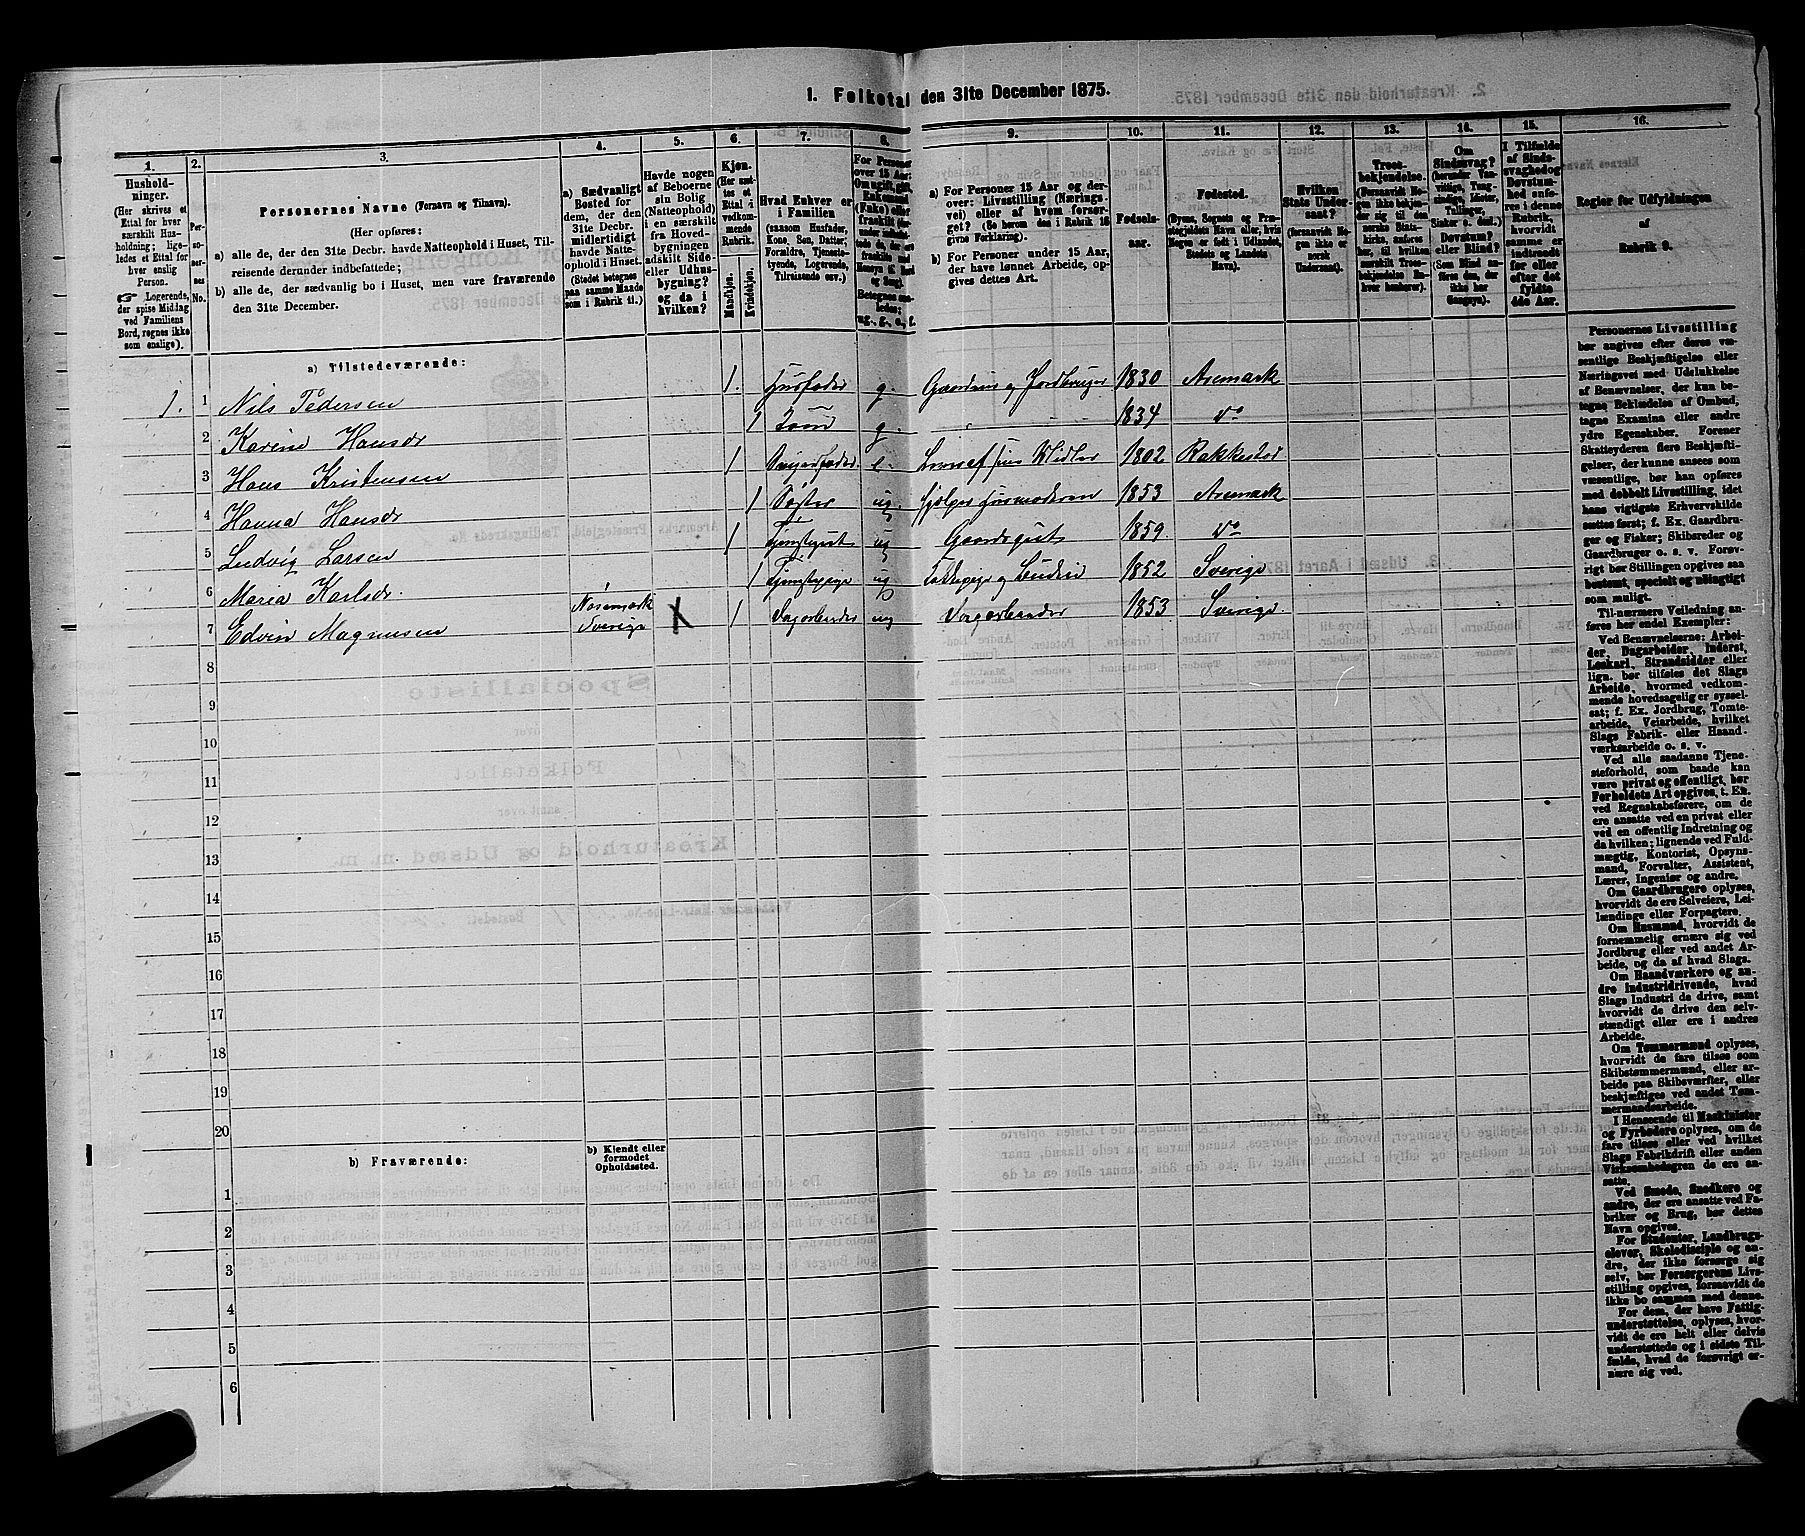 1. Folketal den 31te December 1875.
1.
Hushold-
ninger.
(Her skrives et
Ettal for hver
særskilt Hus-
holdning; lige-
ledes et Ettal for
hver enslig
Person.
☞ Logerende,
der spise Middag
ved Familiens
Bord, regnes ikke
som enslige).
2.
Per-
so-
ner-
nes
No.
3.
Personernes Navne (Fornavn og Tilnavn).
(Her opføres:
a) alle de, der den 31te Decbr. havde Natteophold i Huset, Til-
reisende derunder indbefattede;
b) alle de, der sædvanlig bo i Huset, men vare fraværende
den 31te December.
4.
a) Sædvanligt
Bosted for
dem, der den
31te Decbr.
midlertidigt
havde Natte-
ophold i Huset.
(Stedet betegnes
paa samme Maade
som i Rubrik 11.)
5.
Havde nogen
af Beboerne
sin Bolig
(Natteophold)
i en særskilt
fra Hoved-
bygningen
adskilt Side-
eller Udhus-
bygning?
og da i
hvilken?
6.
Kjøn.
(Her sæt-
tes et
Ettal i
vedkom-
mende
Rubrik.
Mandkjøn.
Kvindekjøn.
7.
Hvad Enhver er
i Familien
(saasom Husfader,
Kone, Søn, Datter,
Forældre, Tjeneste-
tyende, Logerende,
Tilreisende osv.)
8.
For Personer
over 15 Aar:
Om ugift, gift,
Enkemand
(Enke) eller
fraskilt
Betegnes saa-
ledes:
ug., g., e., f.
9.
a) For Personer 15 Aar og der-
over: Livsstilling (Nærings-
vei) eller af hvem forsør-
get? (Se herom den i Rubrik 16
givne Forklaring).
b) For Personer under 15 Aar,
der have lønnet Arbeide, op-
gives dettes Art.
10.
Fødsels-
aar.
11.
Fødested.
(Byens, Sognets og Præ-
stegjeldets Navn eller, hvis
Nogen er født i Udlandet,
Stedets og Landets
Navn).
12.
Hvilken
Stats Under-
saat?
(forsaavidt No-
gen ikke er
norsk
Undersaat).
13.
Troes-
bekjendelse.
(Forsaavidt No-
gen ikke bekjen-
der sig til den
norske Stats-
kirke, anføres
her, til hvilken
Troesbekjendelse
hver henhører).
14.
Om
Sindssvag?
(herunder Van-
vittige, Tung-
sindige, Idioter,
Tullinger,
Sinker o. desl.)
Døvstum?
eller Blind?
(Som Blind an-
føres den, der
ikke har
Gangsyn).
15.
I Tilfælde
af Sinds-
svaghed og
Døvstum-
hed anføres
i denne
Rubrik,
hvorvidt
samme er
indtraadt
før eller
efter det
fyldte
4de Aar.
16.
Regler for Udfyldningen
af
Rubrik 9.
a) Tilstedeværende:
1. 1 Nils Pedersen 1. Husfader g. Gaardeier og Jordbruger 1830 Aremark
2 Karine Hansdr 1 Kone g. 1834 do
3 Hans Kristensen 1 Svigerfader e. Lever af sine Midler 1802 Rakkestad
4 Hanna Hansdr 1 Søster ug. hjelper husmoderen 1853 Aremark
5 Ludvig Larsen 1 Tjenstgut ug Gaardsgut 1859. do
6 Maria Karlsdr. 1 Tjenstepige ug 1852 Sverige
7 Edvin Magnusen Nösemark Sverige X 1 Dagarbeider ug Dagarbeider 1853 Sverige.
8
9
10
11
12
13
14
15
16
17
18
19
20
b) Fraværende:
b) Kjendt eller
formodet
Opholdssted.
1
2
3
4
5
6
Personernes Livsstilling
bør angives efter deres væ-
sentlige Beskjæftigelse eller
Næringsvei med Udelukkelse
af Benævnelser, der kun be-
tegne Beklædelse af Ombud,
tagne Examina eller andre
ydre Egenskaber. Forener
Skatteyderen flere Beskjæfti-
gelser, der kunne ansees som
væsentlige, bør han opføres
med dobbelt Livsstilling, idet
hans vigtigste Erhvervskilde
sættes først; f. Ex. Gaardbru-
ger og Fisker; Skibsreder og
Gaardbruger o. s. v. Forøv-
rigt bør Stillingen opgives saa
bestemt, specielt og nøiagtigt
som muligt.
Til nærmere Veiledning an-
føres her endel Exempler:
Ved Benævnelserne: Arbei-
der, Dagarbeider, Inderst,
Løskarl, Strandsidder eller
lign. bør tilføies det Slags
Arbeide, hvormed vedkom-
mende hovedsagelig er syssel-
sat; f. Ex. Jordbrug, Tomte-
arbeide, Veiarbeide, hvilket
Slags Fabrik- eller Haand-
værksarbeide o. s. v.
Ved alle saadanne Tjene-
steforhold, som baade kan
være privat og offentligt, bør
Forholdets Art opgives, t. Ex.
ved Regnskabsførere, om de
ere ansatte ved en privat eller
ved en offentlig Indretning og
da hvilken; lignende ved Fuld-
mægtig, Kontorist, Opsyns-
mand, Forvalter, Assistent,
Lærer, Ingeniør og andre.
Om Gaardbrugere oplyses,
hvorvidt de ere Selveiere, Lei-
lændinge eller Forpagtere.
Om Husmænd, hvorvidt de
fornemmelig ernære sig ved
Jordbrug eller ved andet Ar-
beide, og da af hvad Slags.
Om Haandværkere og an-
dre Industridrivende, hvad
Slags Industri de drive, samt
hvorvidt de drive den selv-
stændigt eller ere i andres
Arbeide.
Om Tømmermænd oplyses,
hvorvidt de fare tilsøs som
Skibstømmermænd, eller ar-
beide paa Skibsværfter, eller
beskjæftiges ved andet Tøm-
mermandsarbeide.
I Henseende til Maskinister
og Fyrbødere oplyses, om de
fare tilsøs eller ved hvilket
Slags Fabrikdrift eller anden
Virksomhedsgren de ere an-
satte.
Ved Smede, Snedkere og
andre, der ere ansatte ved Fa-
briker og Brug, bør dettes
Navn opgives.
For Studenter, Landbrugs-
elever, Skoledisciple og an-
dre, der ikke forsørge sig
selv, bør Forsørgerens Livs-
stilling opgives, forsaavidt de
ikke bo sammen med denne.
For dem, der have Fattig-
understøttelse, oplyses, hvor-
vidt de ere helt eller delvis
understøttede og i sidste Til-
fælde, hvad de forøvrigt er-
nære sig ved.